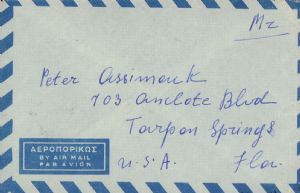 Mr
Peter Assimouk
703 Anclote Blvd
Tarpon Springs
U.S.A. Fla.
ΑΕΡΟΠΟΡΙΚΩΣ
BY AIR MAIL
PAR AVION